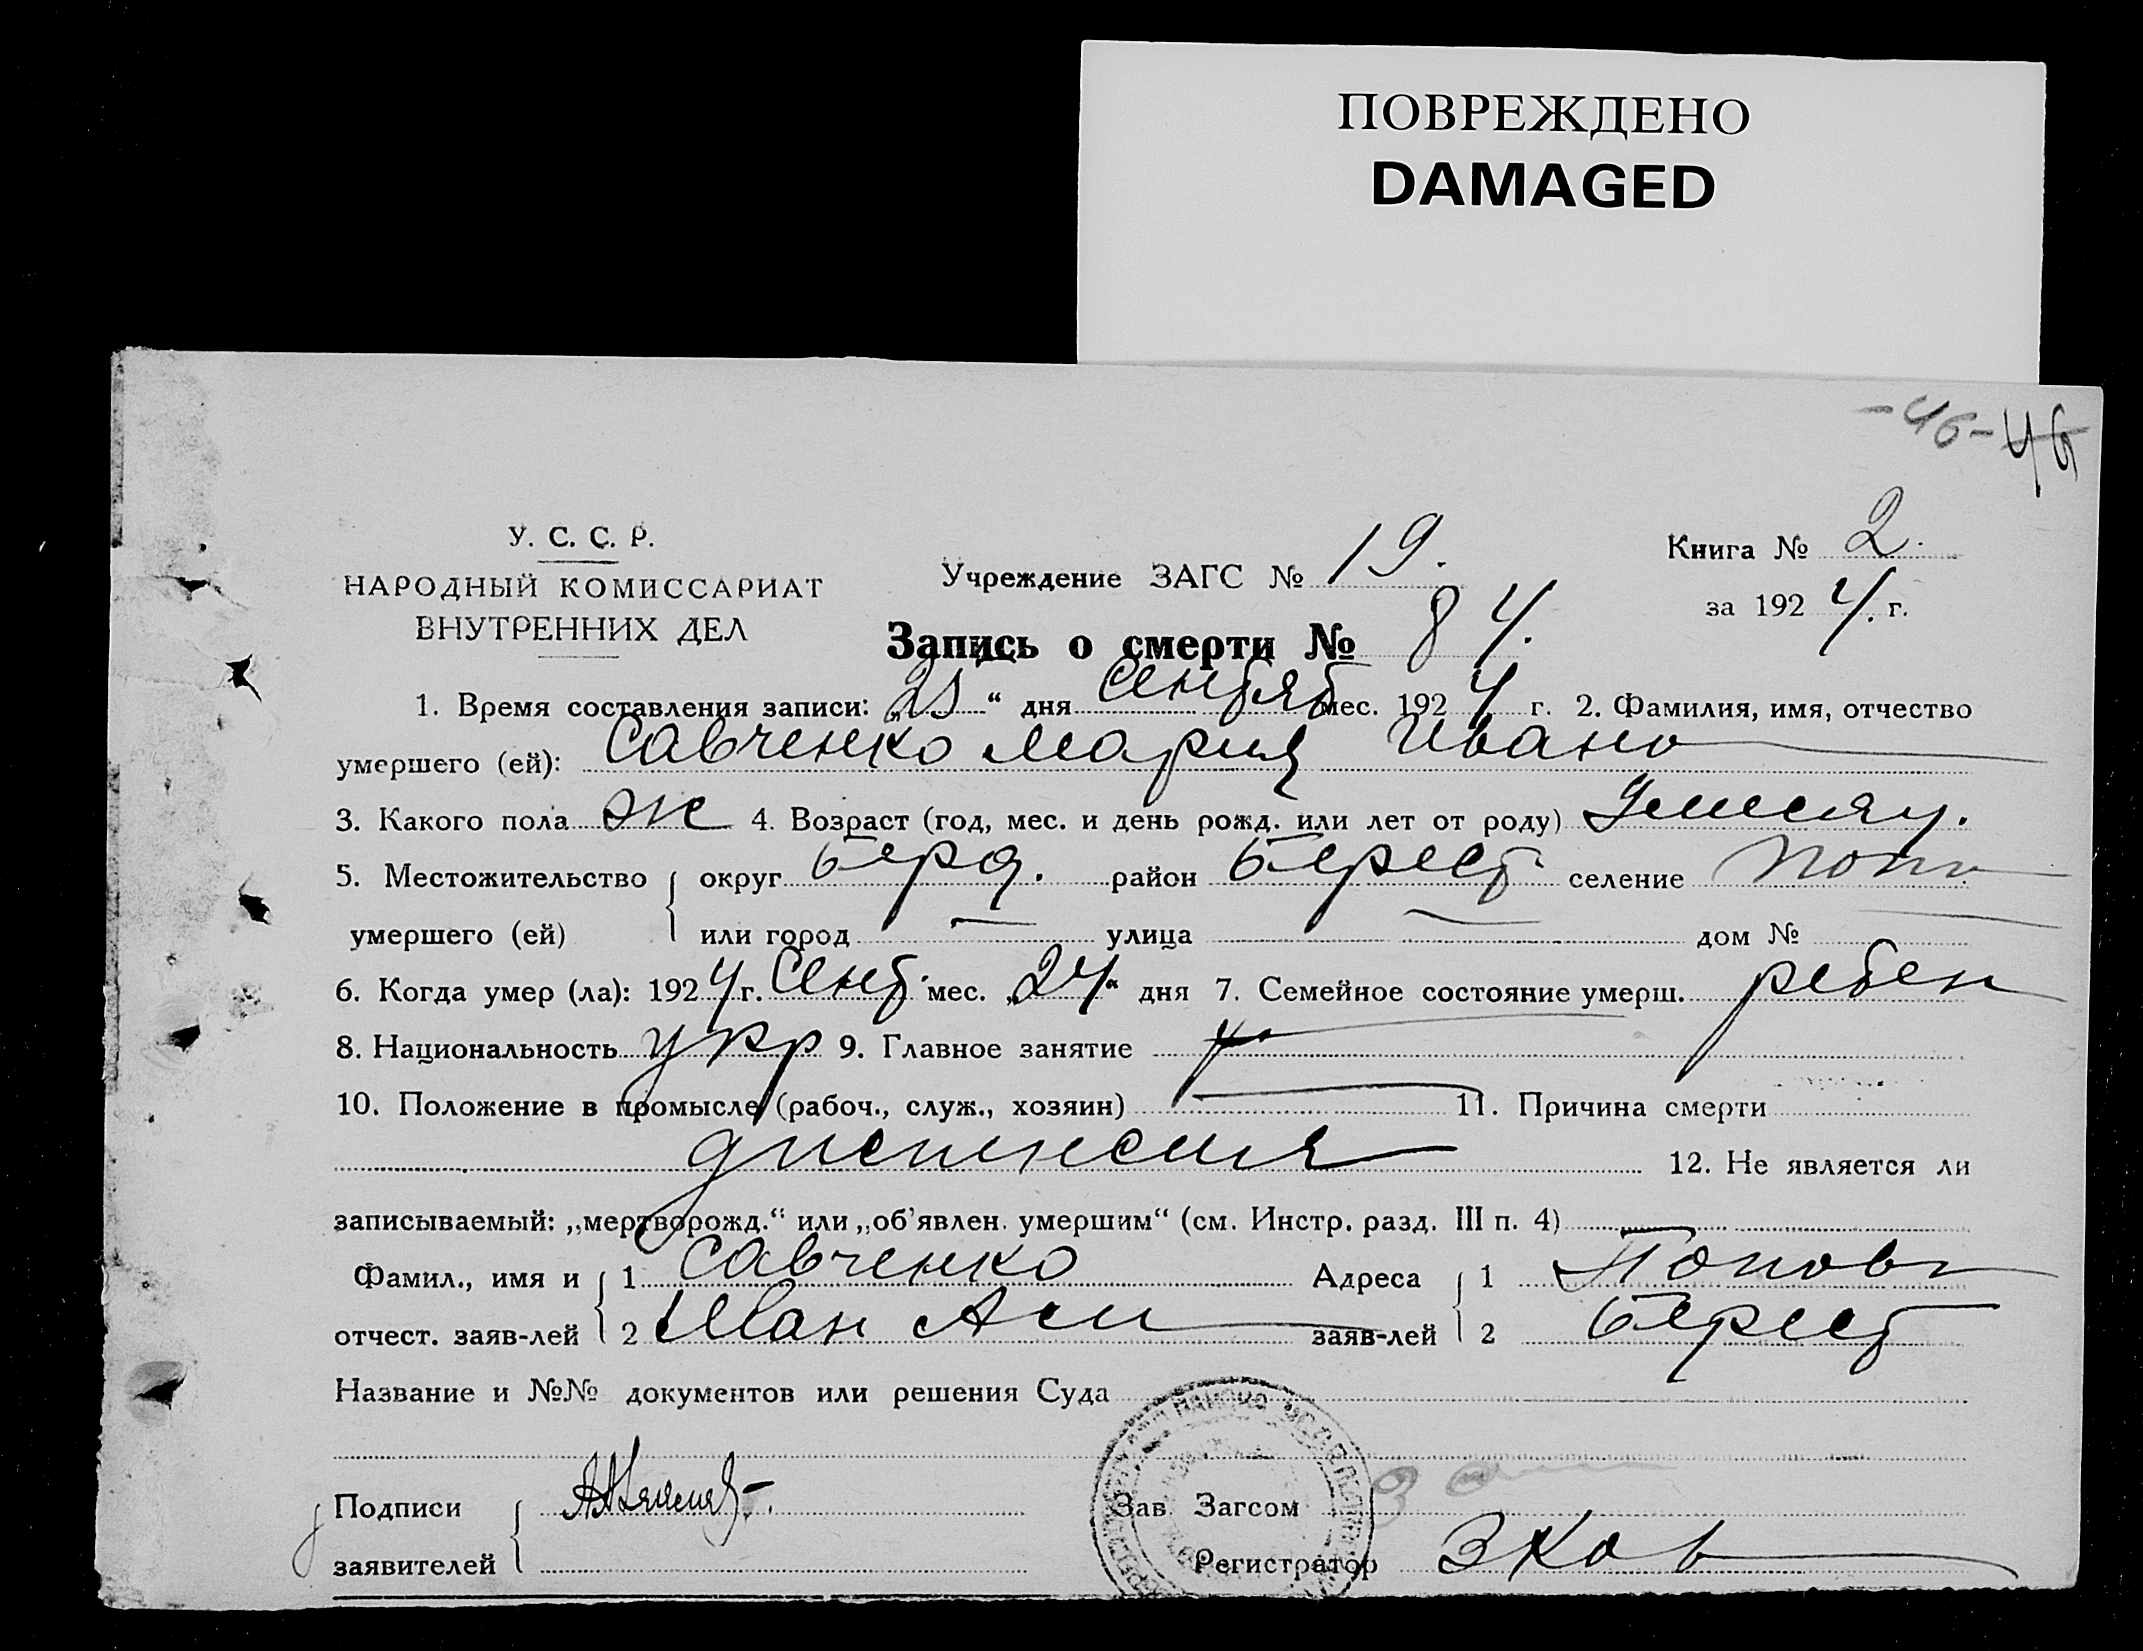 ПОВРЕЖДЕНО
DAMAGED
-46- 46
У. С. С. Р.
НАРОДНЫЙ КОМИССАРИАТ
ВНУТРЕННИХ ДЕЛ
Учреждение ЗАГС № 19.
Книга № 2.
за 1924 г.
Запись о смерти № 84.
1. Время составления записи: „25“ дня Сентяб мес. 1924 г. 2. Фамилия, имя, отчество
умершего (ей): Савченко Мария Ивано
3. Какого пола ж 4. Возраст (год, мес. и день рожд. или лет от роду) месяц.
5. Местожительство округ Берд. район Берест селение Попов
умершего (ей) или город — улица — дом №
6. Когда умер (ла): 1924 г. Сент. мес. „24“ дня 7. Семейное состояние умерш. ребен
8. Национальность укр 9. Главное занятие
10. Положение в промысле (рабоч., служ., хозяин) — 11. Причина смерти
диспепсия 12. Не является ли
записываемый: „мертворожд.“ или „об'явлен. умершим“ (см. Инстр. разд. III п. 4)
Фамил., имя и 1 Савченко Адреса 1 Попов
отчест. заяв-лей 2 Иван заяв-лей 2 Берест
Название и №№ документов или решения Суда
Подписи Зав. Загсом
заявителей Регистратор